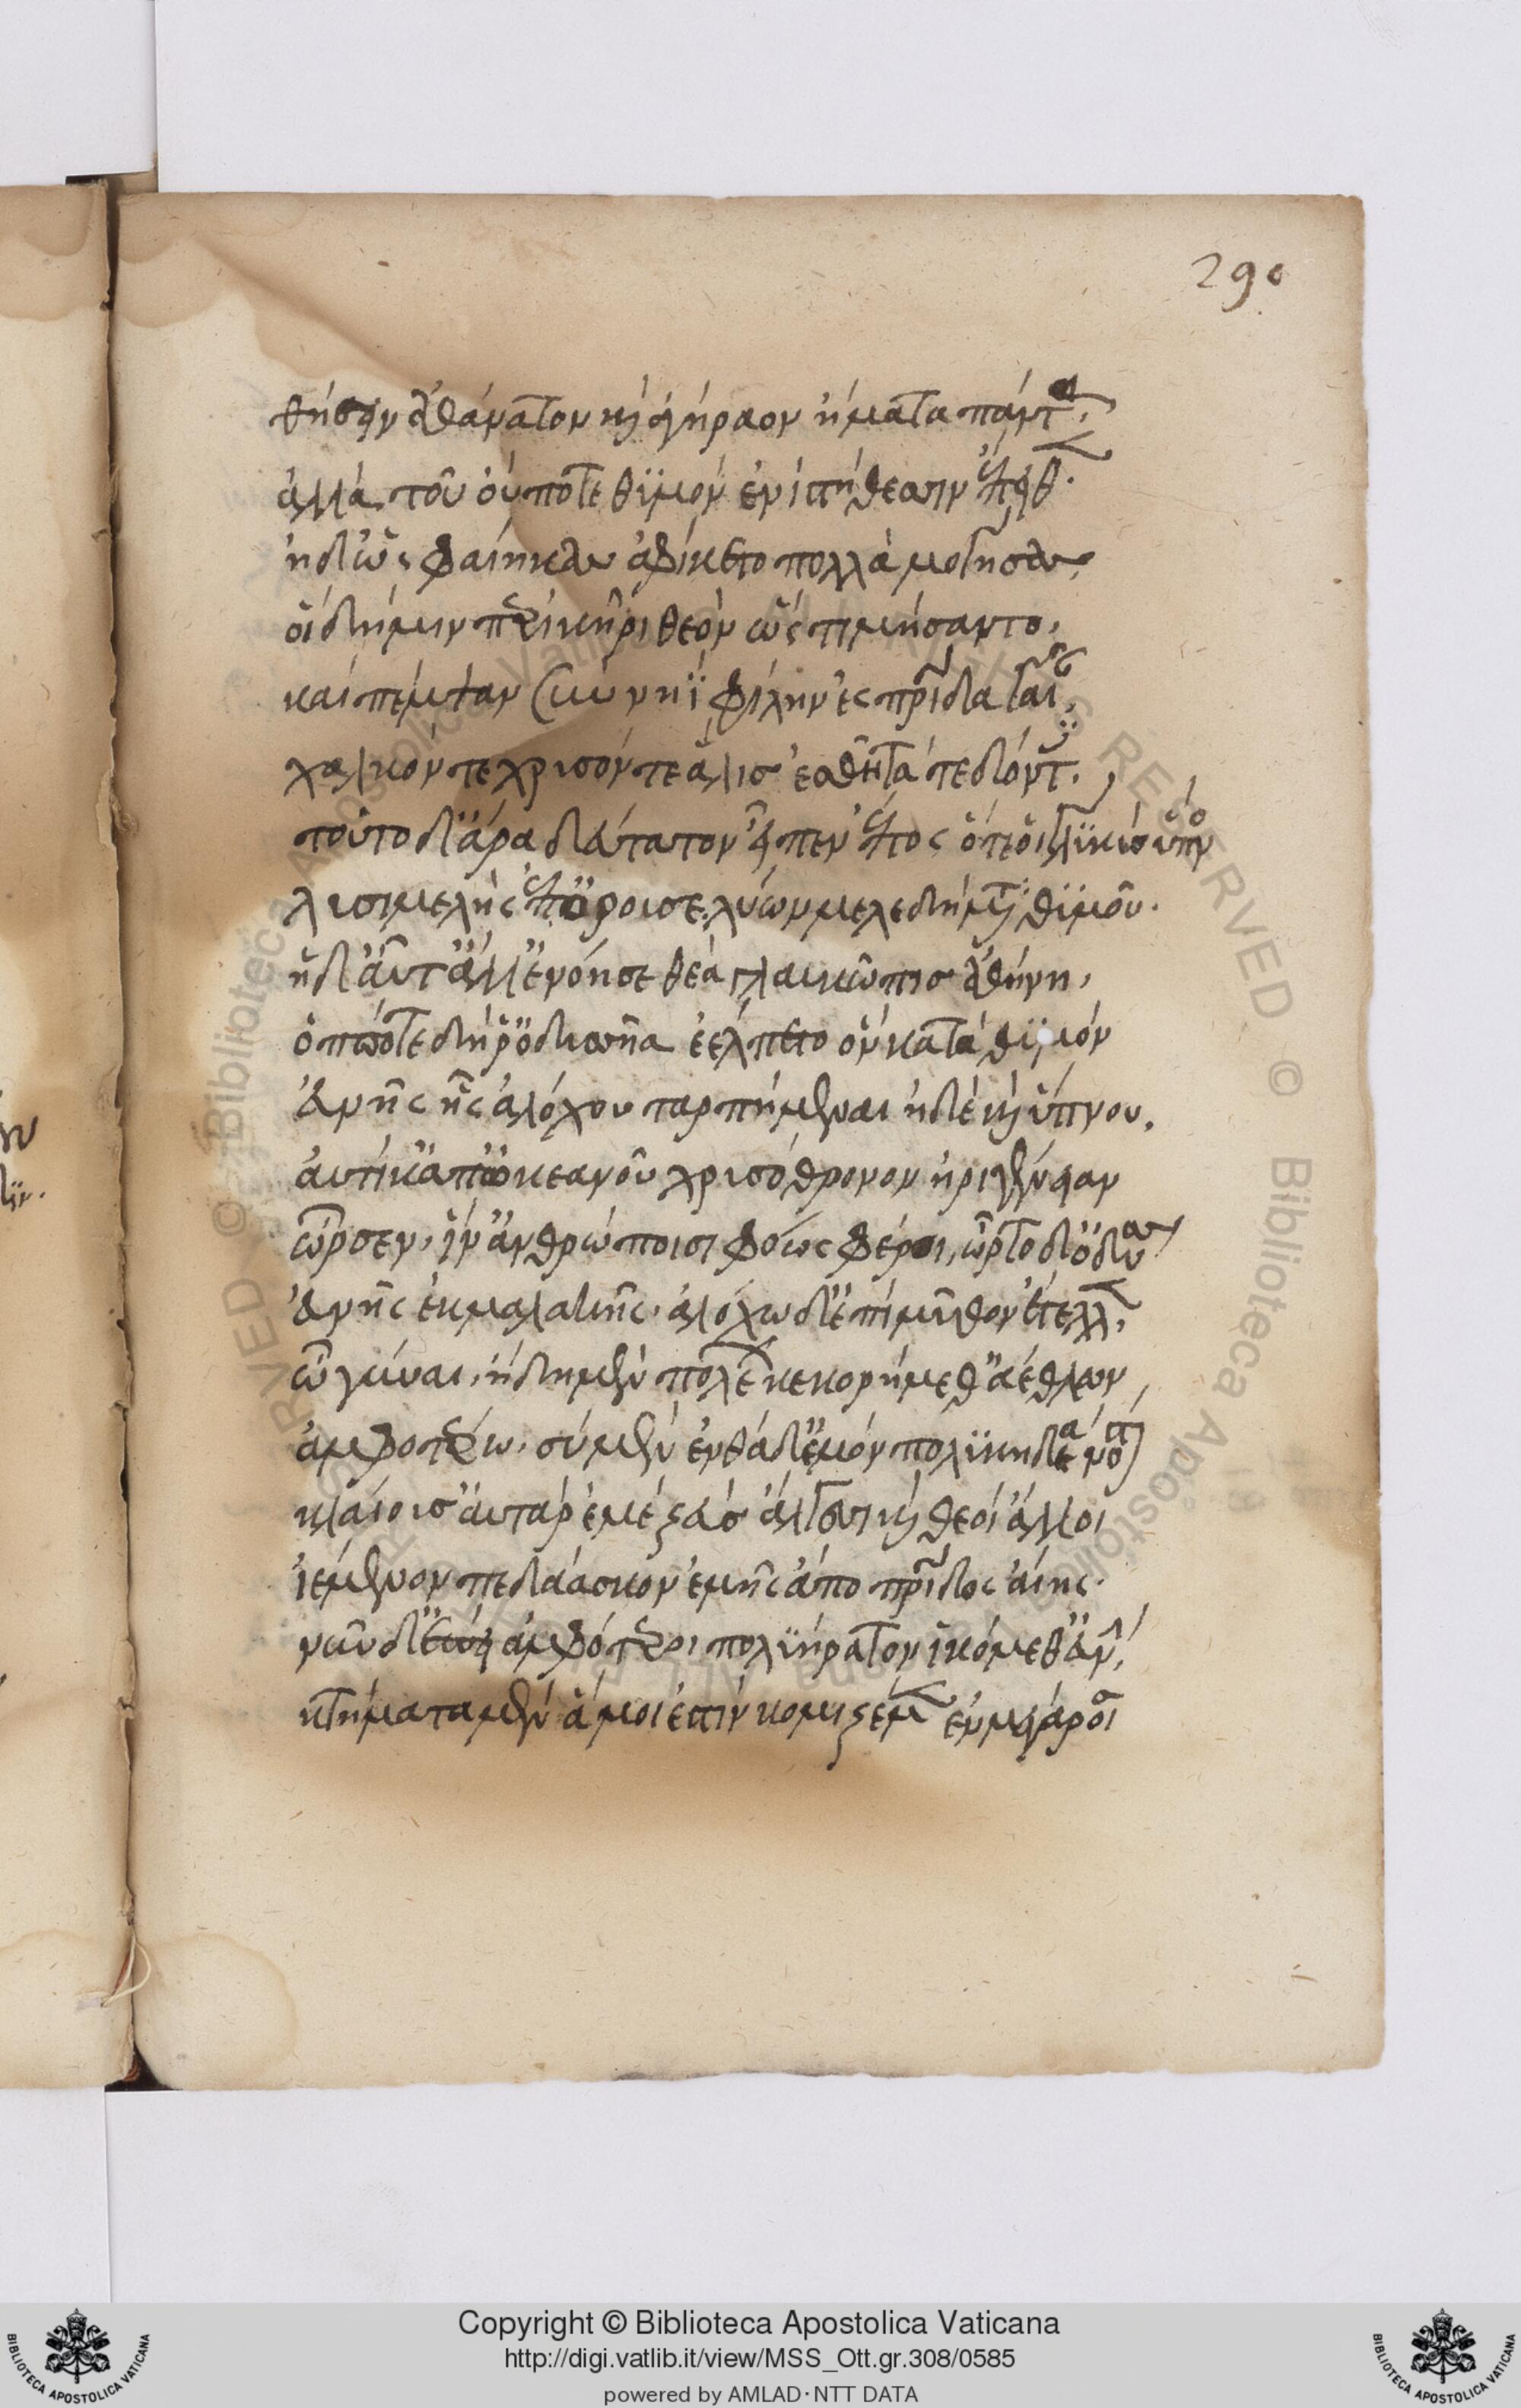 290
θήσειν ἀθάνατον καὶ ἀγήραον ἤματα πάντα,
ἀλλὰ τοῦ οὔποτε θυμὸν ἐνὶ στήθεσσιν ἔπειθεν.
ἠδ' ὡς φαίηκας ἀφίκετο πολλὰ μογήσας,
οἳ δή μιν περὶ κῆρι θεὸν ὣς τιμήσαντο,
καὶ πέμψαν σὺν νηῒ φίλην ἐς πατρίδα γαῖαν,
χαλκόν τε χρυσόν τε ἅλις ἐσθῆτά τε δόντες.
τοῦτ' ὄἄρα δεύτατον εἶπεν ἔπος ὅτε οἱ γλυκὺς ὕπνος
λυσιμελὴς ἐπόρουσε λύων μελεδήματα θυμοῦ.
ἡ δ' αὖτ' ἄλλ' ἐνόησε θεὰ γλαυκῶπις ἀθήνη,
ὁππότε δή ῥ' ὀδυσῆα ἐέλπετο ὃν κατὰ θυμὸν
εὐνῆς ἧς ἀλόχου ταρπήμεναι ἠδὲ καὶ ὕπνου,
αὐτίκ' ἀπ' ὠκεανοῦ χρυσόθρονον ἠριγένειαν
ὦρσεν, ἵν' ἀνθρώποισι φόως φέροι, ὦρτο δ' ὀδυσσεὺς
εὐνῆς ἐκ μαλακῆς, ἀλόχω δ' ἐπὶ μῦθον ἔτελλεν,
ὦ γύναι, ἤδη μὲν πολέων κεκορήμεθ' ἀέθλων
ἀμφοτέρω, σὺ μὲν ἐνθάδ' ἐμὸν πολυκηδέα νόστον
κλαίουσ' αὐτὰρ ἐμὲ ζεὺς ἄλγεσι καὶ θεοὶ ἄλλοι
ἱέμενον πεδάασκον ἐμῆς ἀπο πατρίδος αἴης.
νῦν δ' ἐπεὶ ἀμφότεροι πολυήρατον ἱκόμεθ' εὐνήν,
κτήματα μὲν ἅ μοι ἐστὶν κομιζέμεν ἐν μεγάροισι
Copyright © Biblioteca Apostolica Vaticana
http://digi.vatlib.it/view/MSS_Ott.gr.308/0585
powered by AMLAD·NTT DATA